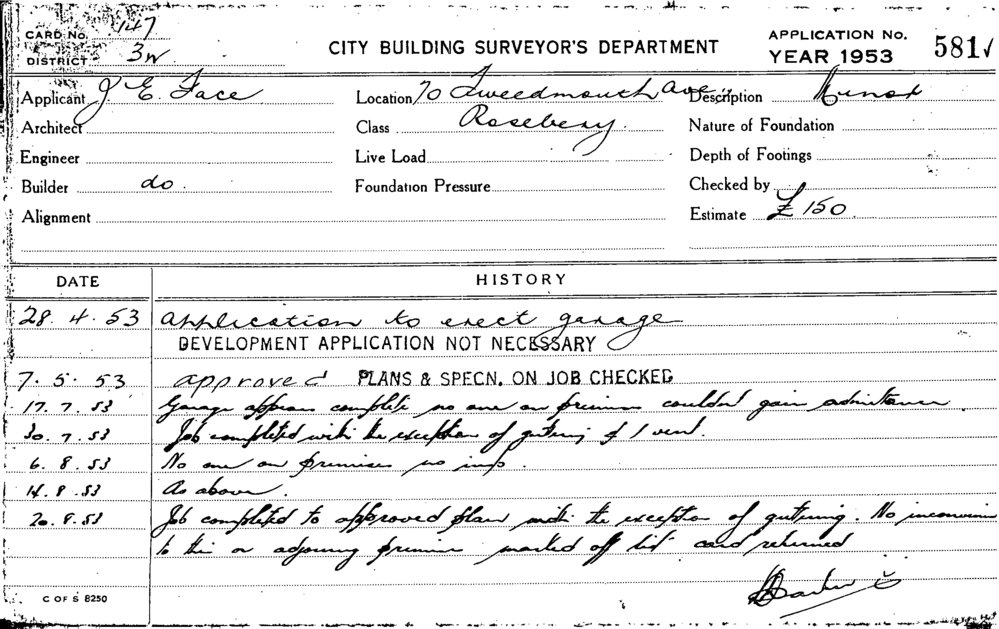 CARD No. 147
DISTRICT 3W
CITY BUILDING SURVEYOR'S DEPARTMENT
APPLICATION No.
YEAR 1953
581
Applicant J. E. Face
Location 70 Tweedmouth Ave.
Description Minor
Architect
Class Rosebery.
Nature of Foundation
Engineer
Live Load
Depth of Footings
Builder do.
Foundation Pressure
Checked by
Alignment
Estimate £150
DATE HISTORY
28. 4. 53 Application to erect garage
DEVELOPMENT APPLICATION NOT NECESSARY
7. 5. 53 approved PLANS & SPECN. ON JOB CHECKED
17. 7. 53 Garage appears complete no one on premises couldn't gain admittance
30. 7. 53 Job completed with the exception of gutering & 1 vent.
6. 8. 53 No one on premises no insp.
14. 8. 53 As above.
20. 8. 53 Job completed to approved plan with the exception of gutering. No
to this or adjoining premises marked off list card returned
C OF S 8250